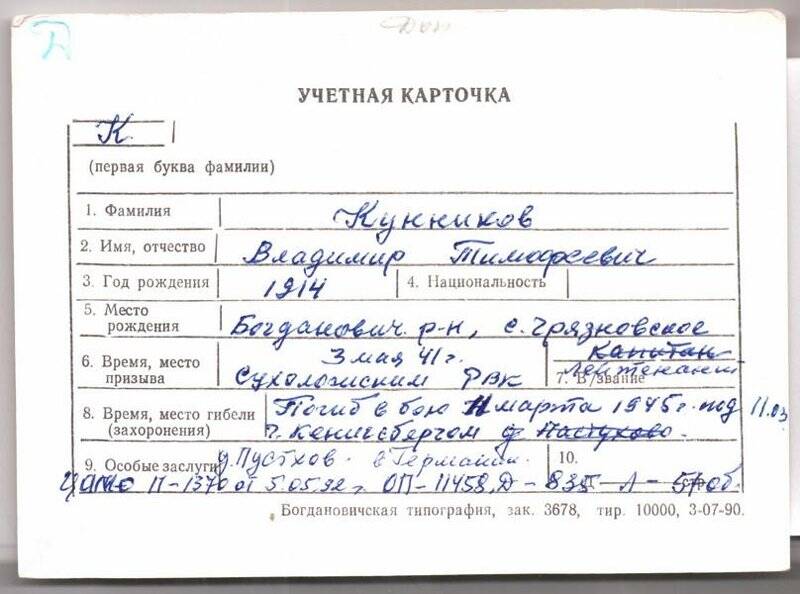 Д
Доп
УЧЕТНАЯ КАРТОЧКА
К
(первая буква фамилии)
1. Фамилия Кунников
2. Имя, отчество Владимир Тимофеевич
3. Год рождения 1914 4. Национальность
5. Место рождения Богданович. р-н, с. Грязновское
6. Время, место призыва 3 мая 41 г. Сухоложским РВК
7. В/звание капитан лейтенант
8. Время, место гибели (захоронения) Погиб в бою 11 марта 1945 г. под 11.03
г. Кенигсбергом д. Пастухово.
9. Особые заслуги д. Пустхов. в Германии. 10.
ЦАМО П-1370 от 5.05.92 г. ОП-11458, Д-835 Л-57об.
Богдановичская типография, зак. 3678, тир. 10000, 3-07-90.